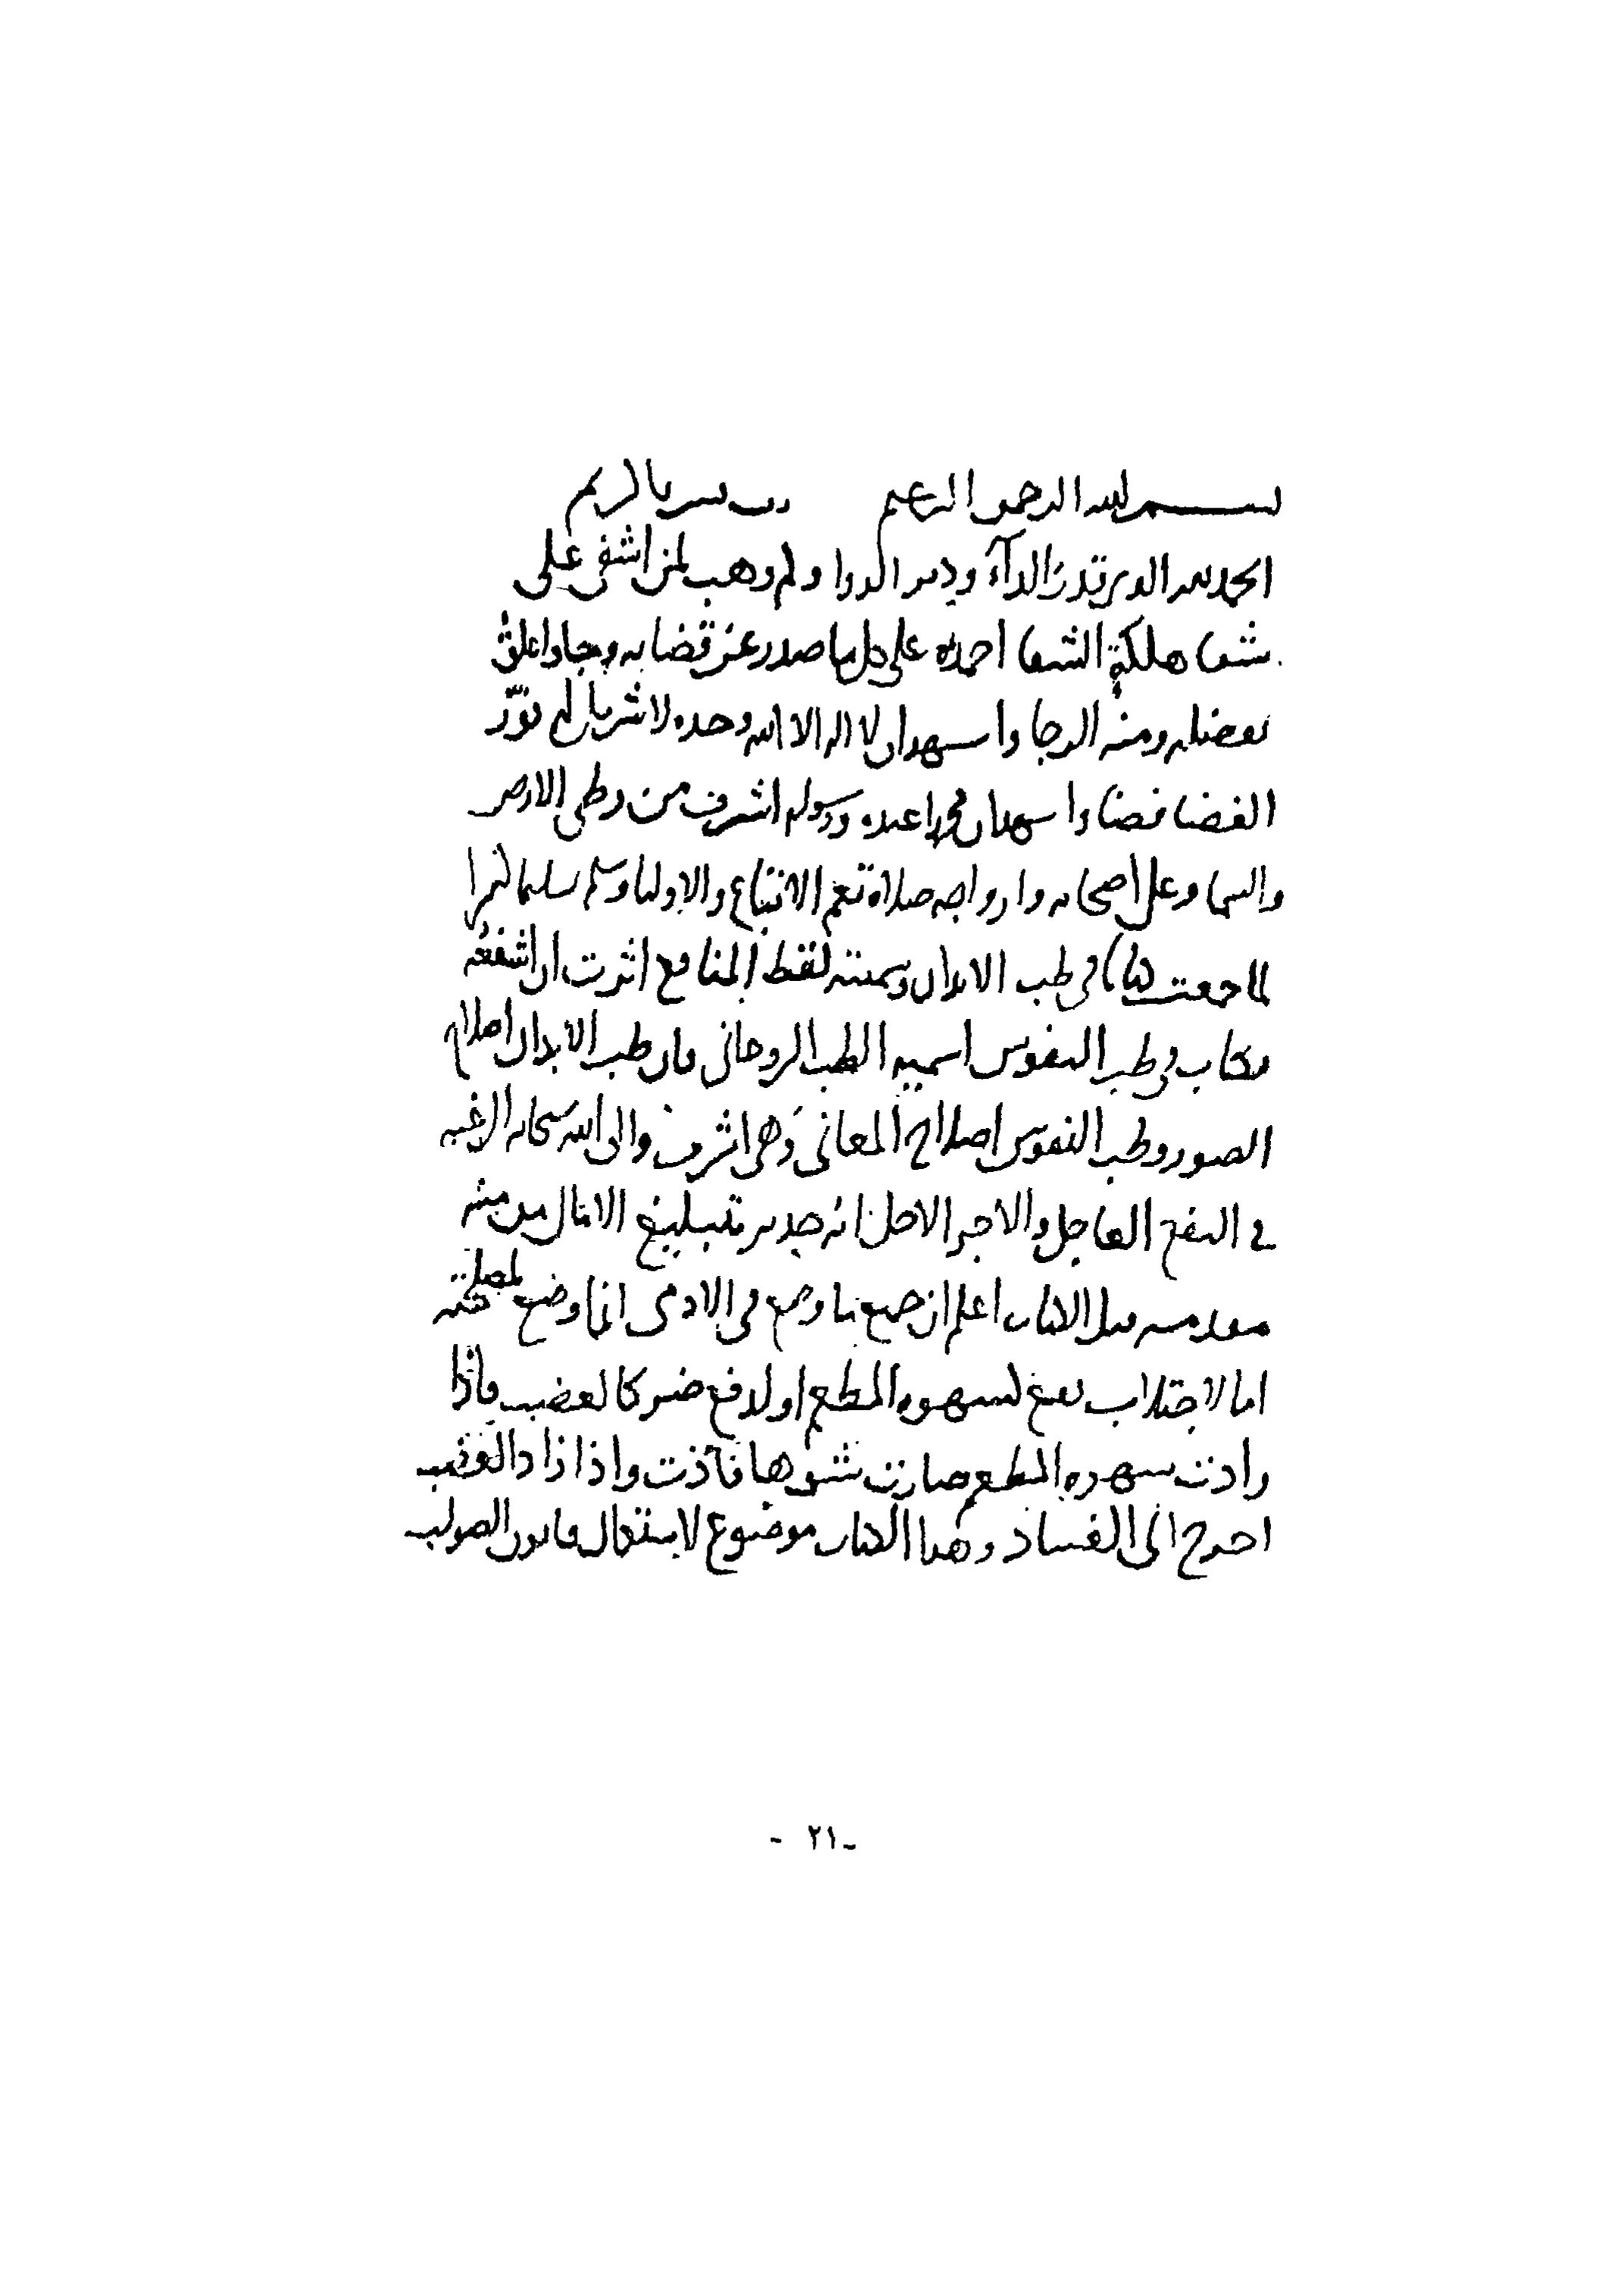 بسم الله الرحمن الرحيم رب يسر يا كريم
الحمد لله الذي قدر الدآء ودبر الدوا ولم وهب لمن اشفى على
شفا هلكة الشفا احمده على كل ما صدر عن قضايه وجاد اعلق
بفضله ومنه الرجا واشهد ان لا اله الا الله وحده لا شريك له نوّر
الفضا فضاء واشهد ان محمدا عبده ورسوله اشرف من وطى الارض
والسما وعلى اصحابه وازواجه صلاة تعم الاتباع والاوليا وسلم تسليما كثيرا
لما جمعت كتابا في طب الابدان وسميته لقط المنافع اثرت ان اشفعه
بكتاب في طب النفوس اسميه الطب الروحاني فان طب الابدان اصلاح
الصور وطب النفوس اصلاح المعاني وهي اشرف والى الله سبحانه الرغبه
في النفع العاجل والاجر الاجل انه جدير بتبليغ الامال من منه
مقدمه قبل الكتاب اعلم ان جميع ما وضع في الادمى انما وضع لمصلحته
اما لاجتلاب نفع كشهوه المطعم او لدفع ضر كالغضب فاذا
زادت شهوه المطعم صارت شرها فاذت واذا زاد الغضب
اخرج الى الفساد وهذا الكتاب موضوع لاستعمال قانون الصواب
- ٢١ -